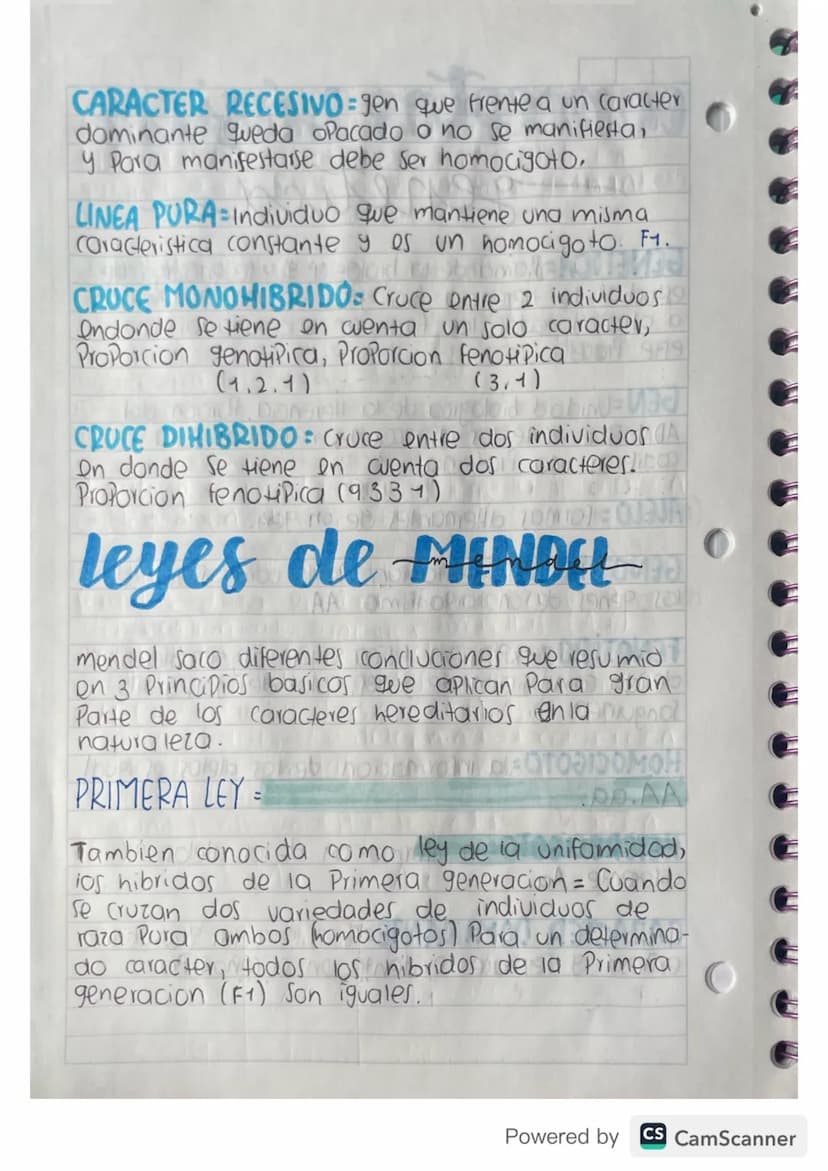 CARACTER RECESIVO = gen que frente a un caracter
dominante queda opacado o no se manifiesta,
y Para manifestarse debe ser homocigoto.
LINEA PURA = Individuo que mantiene una misma
caracteristica constante y es un homocigoto. F1.
CRUCE MONOHIBRIDO = Cruce entre 2 individuos
endonde se tiene en cuenta un solo caracter,
Proporcion genotipica, Proporcion fenotipica
(1,2,1) (3,1)
CRUCE DIHIBRIDO = Cruce entre dos individuos
en donde se tiene en cuenta dos caracteres.
Proporcion fenotipica (9331)
leyes de MENDEL mendel
mendel saco diferentes concluciones que resumio
en 3 Principios basicos que aplican Para gran
Parte de los caracteres hereditarios en la
naturaleza.
PRIMERA LEY =
Tambien conocida como ley de la unifomidad,
los hibridos de la Primera generacion = Cuando
se cruzan dos variedades de individuos de
raza Pura ambos (homocigotos) Para un determina-
do caracter, todos los hibridos de la Primera
generacion (F1) son iguales.
Powered by CS CamScanner